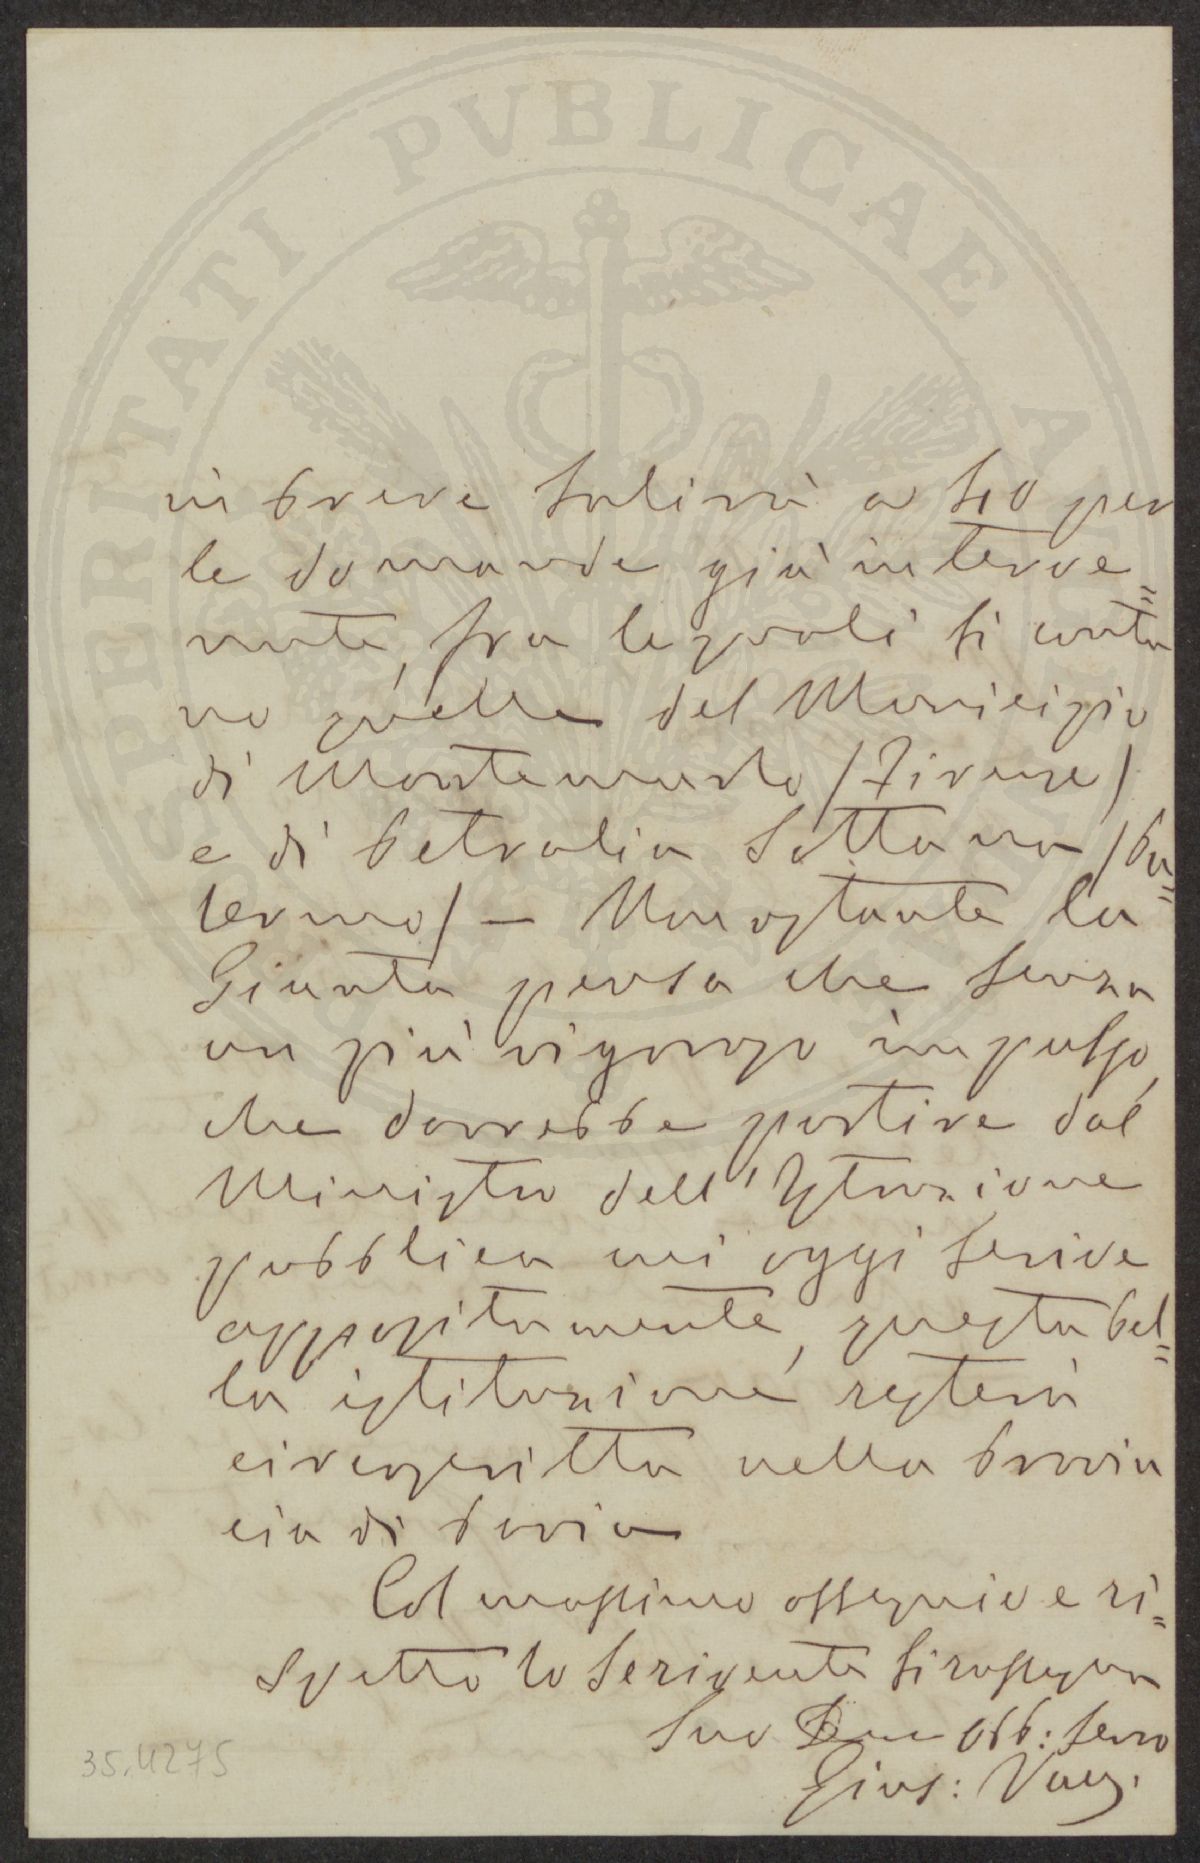 PROSPERITATI PVBLICAE AVGENDAE
in breve salirà a 40 per
le domande già interve=
nute, fra le quali si conta
no quelle del Municipio
di Montemurlo (Firenze)
e di Petralia Sottana (Pa=
lermo) — Nonostante la
Giunta pensa che senza
un più vigoroso impulso,
che dovrebbe partire dal
Ministro dell'Istruzione
pubblica cui oggi scrive
appositamente, questa bel=
la istituzione resterà
circoscritta nella Provin
cia di Pavia
Col massimo ossequio e ri=
spetto lo scrivente si rassegna
Suo Dev Obb: Servo
Gius:
35.4275